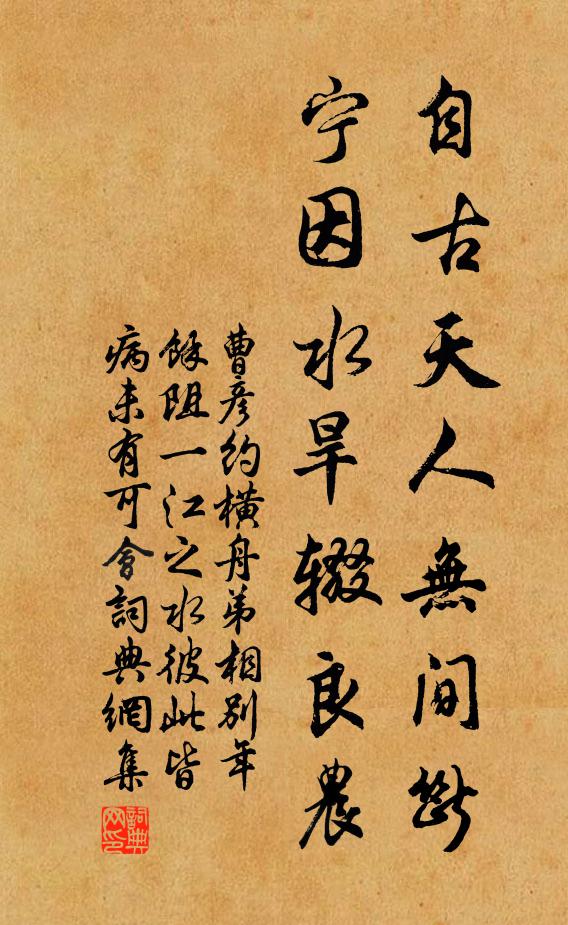 自古天人無间斷
宁因水旱辍良農
曹彦约横舟弟相别年
餘阻一江之水彼此皆
病未有可會詞典網集
詞典网印